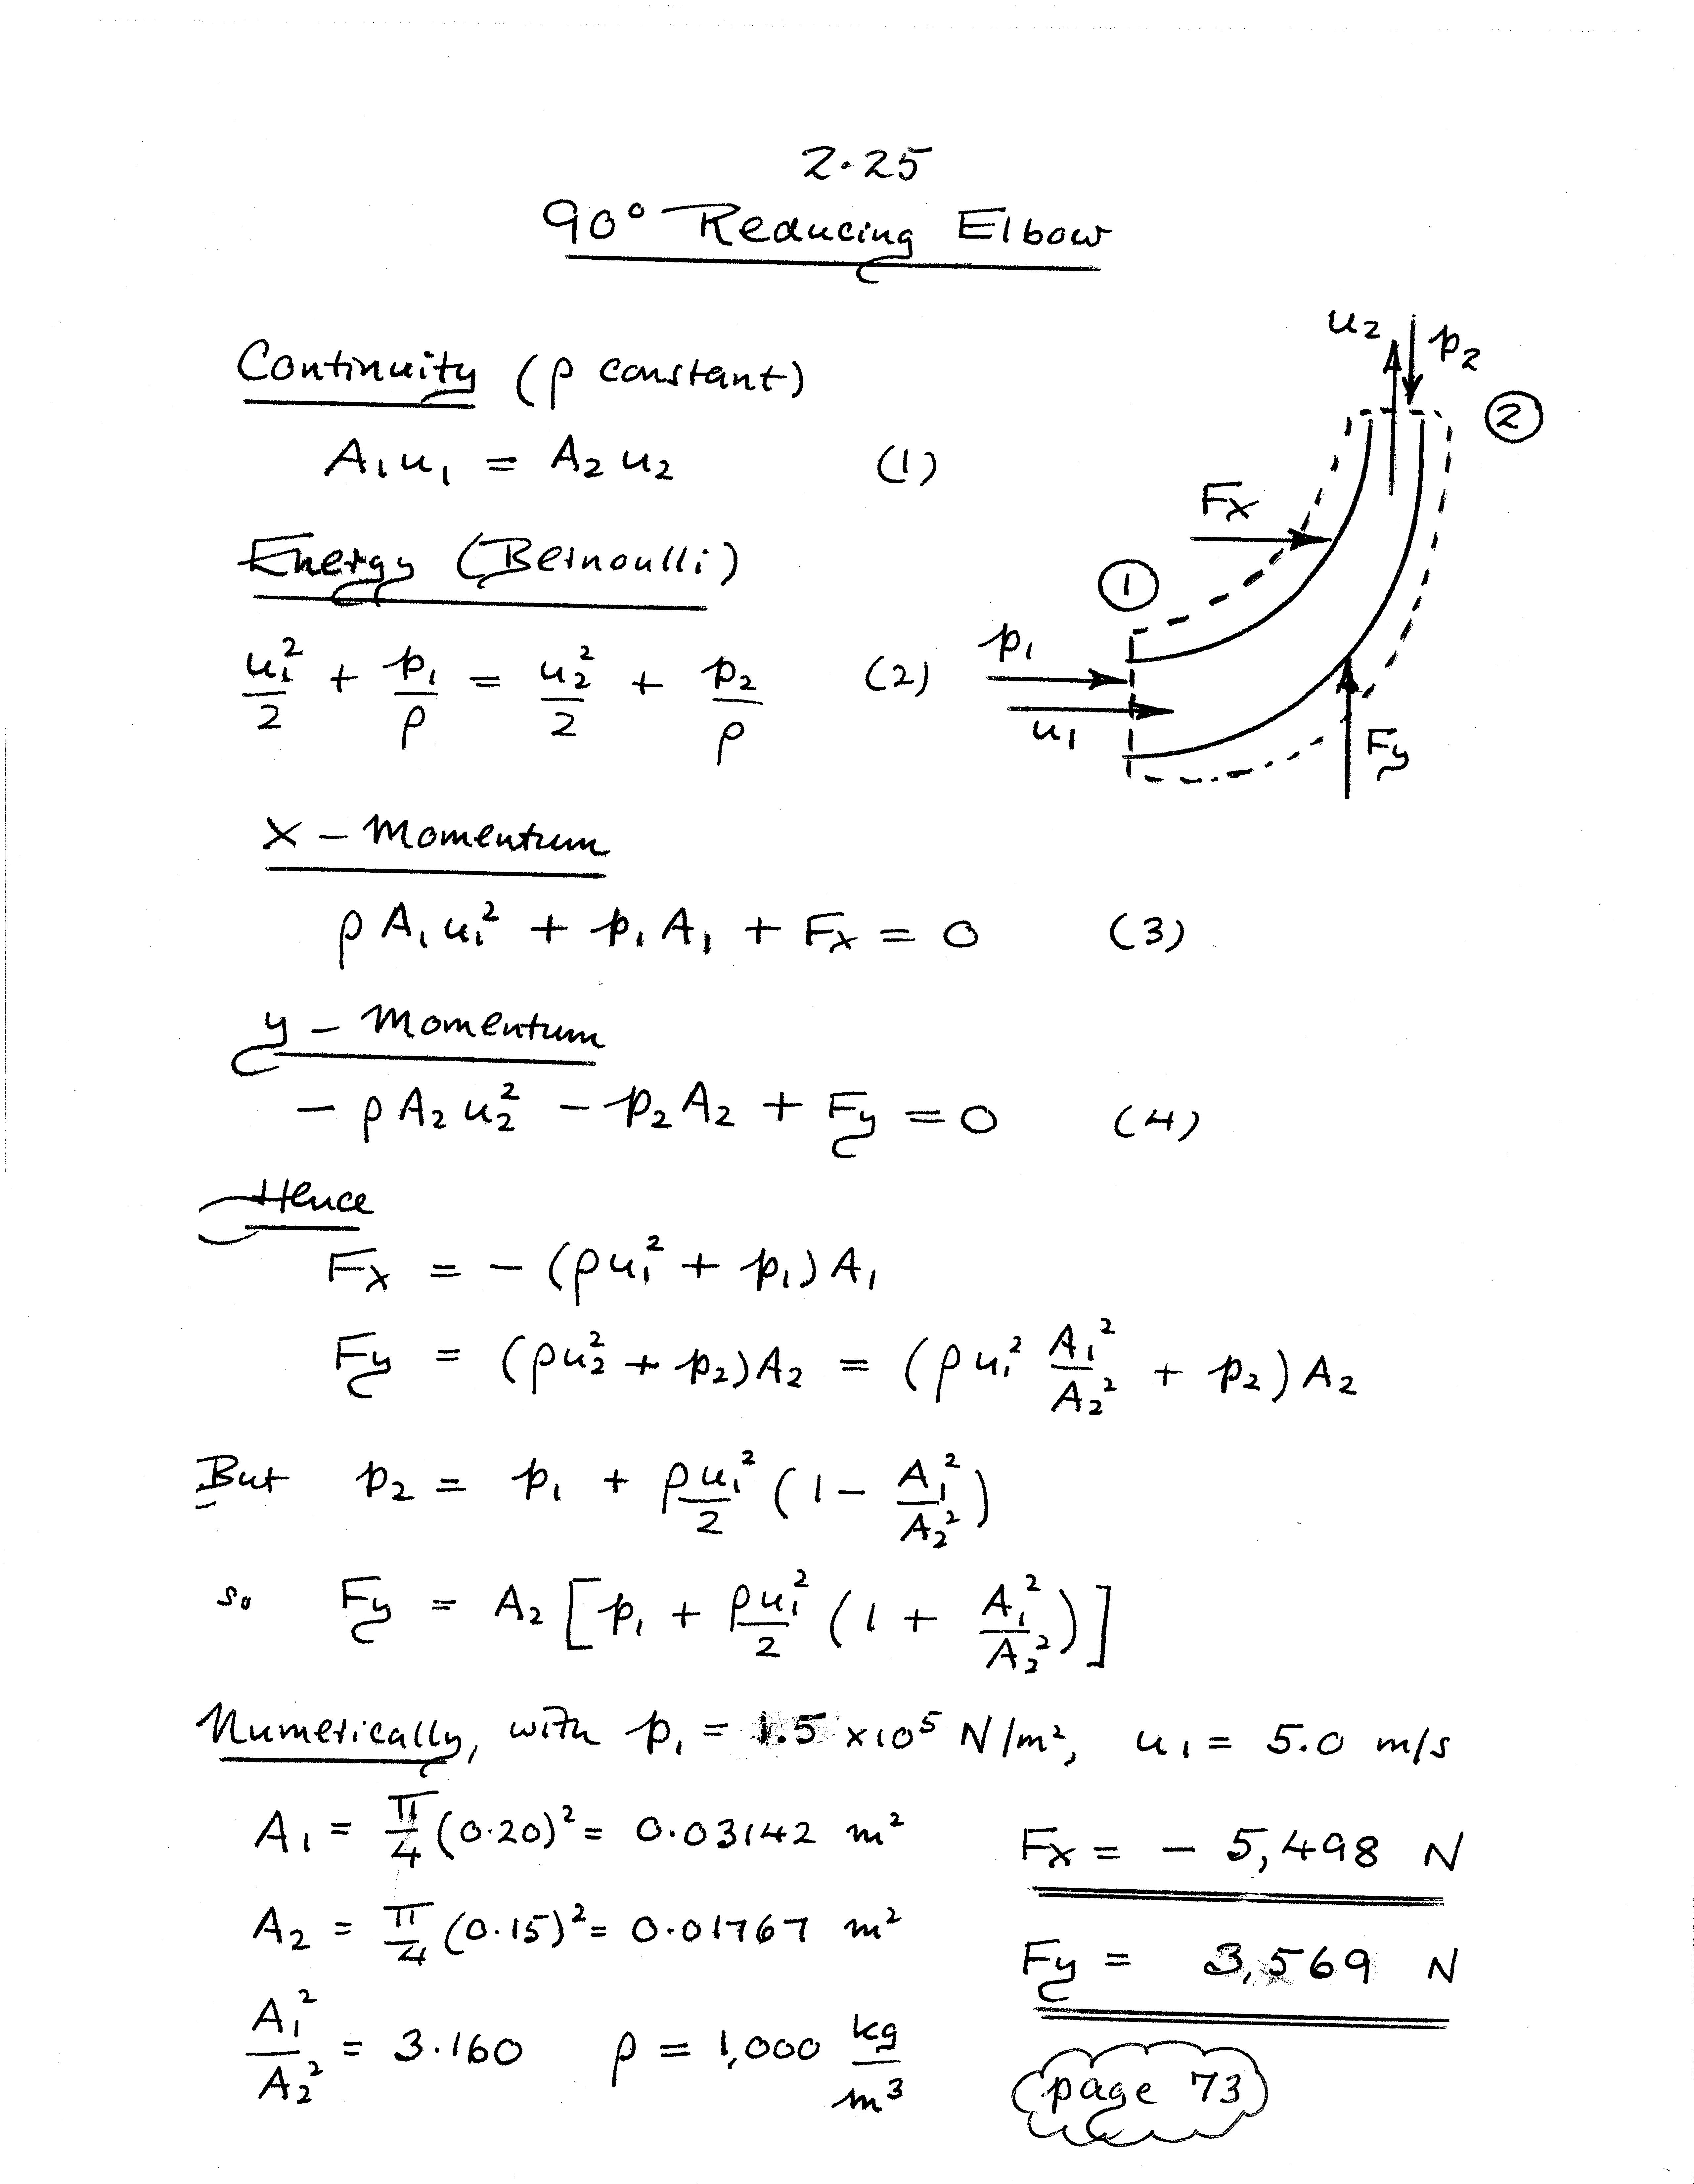 2.25
90° Reducing Elbow
Continuity (ρ constant)
A₁u₁ = A₂u₂ (1)
Energy (Bernoulli)
u₁²/2 + p₁/ρ = u₂²/2 + p₂/ρ (2)
u₂ p₂
②
Fx
①
p₁
u₁
Fy
x - Momentum
ρA₁u₁² + p₁A₁ + Fx = 0 (3)
y - Momentum
- ρA₂u₂² - p₂A₂ + Fy = 0 (4)
Hence
Fx = - (ρu₁² + p₁)A₁
Fy = (ρu₂² + p₂)A₂ = (ρu₁² A₁²/A₂² + p₂)A₂
But p₂ = p₁ + ρu₁²/2 (1 - A₁²/A₂²)
so Fy = A₂[p₁ + ρu₁²/2 (1 + A₁²/A₂²)]
Numerically, with p₁ = 1.5 x10⁵ N/m², u₁ = 5.0 m/s
A₁ = π/4 (0.20)² = 0.03142 m²
Fx = - 5,498 N
A₂ = π/4 (0.15)² = 0.01767 m²
Fy = 3,569 N
A₁²/A₂² = 3.160 ρ = 1,000 kg/m³
page 73